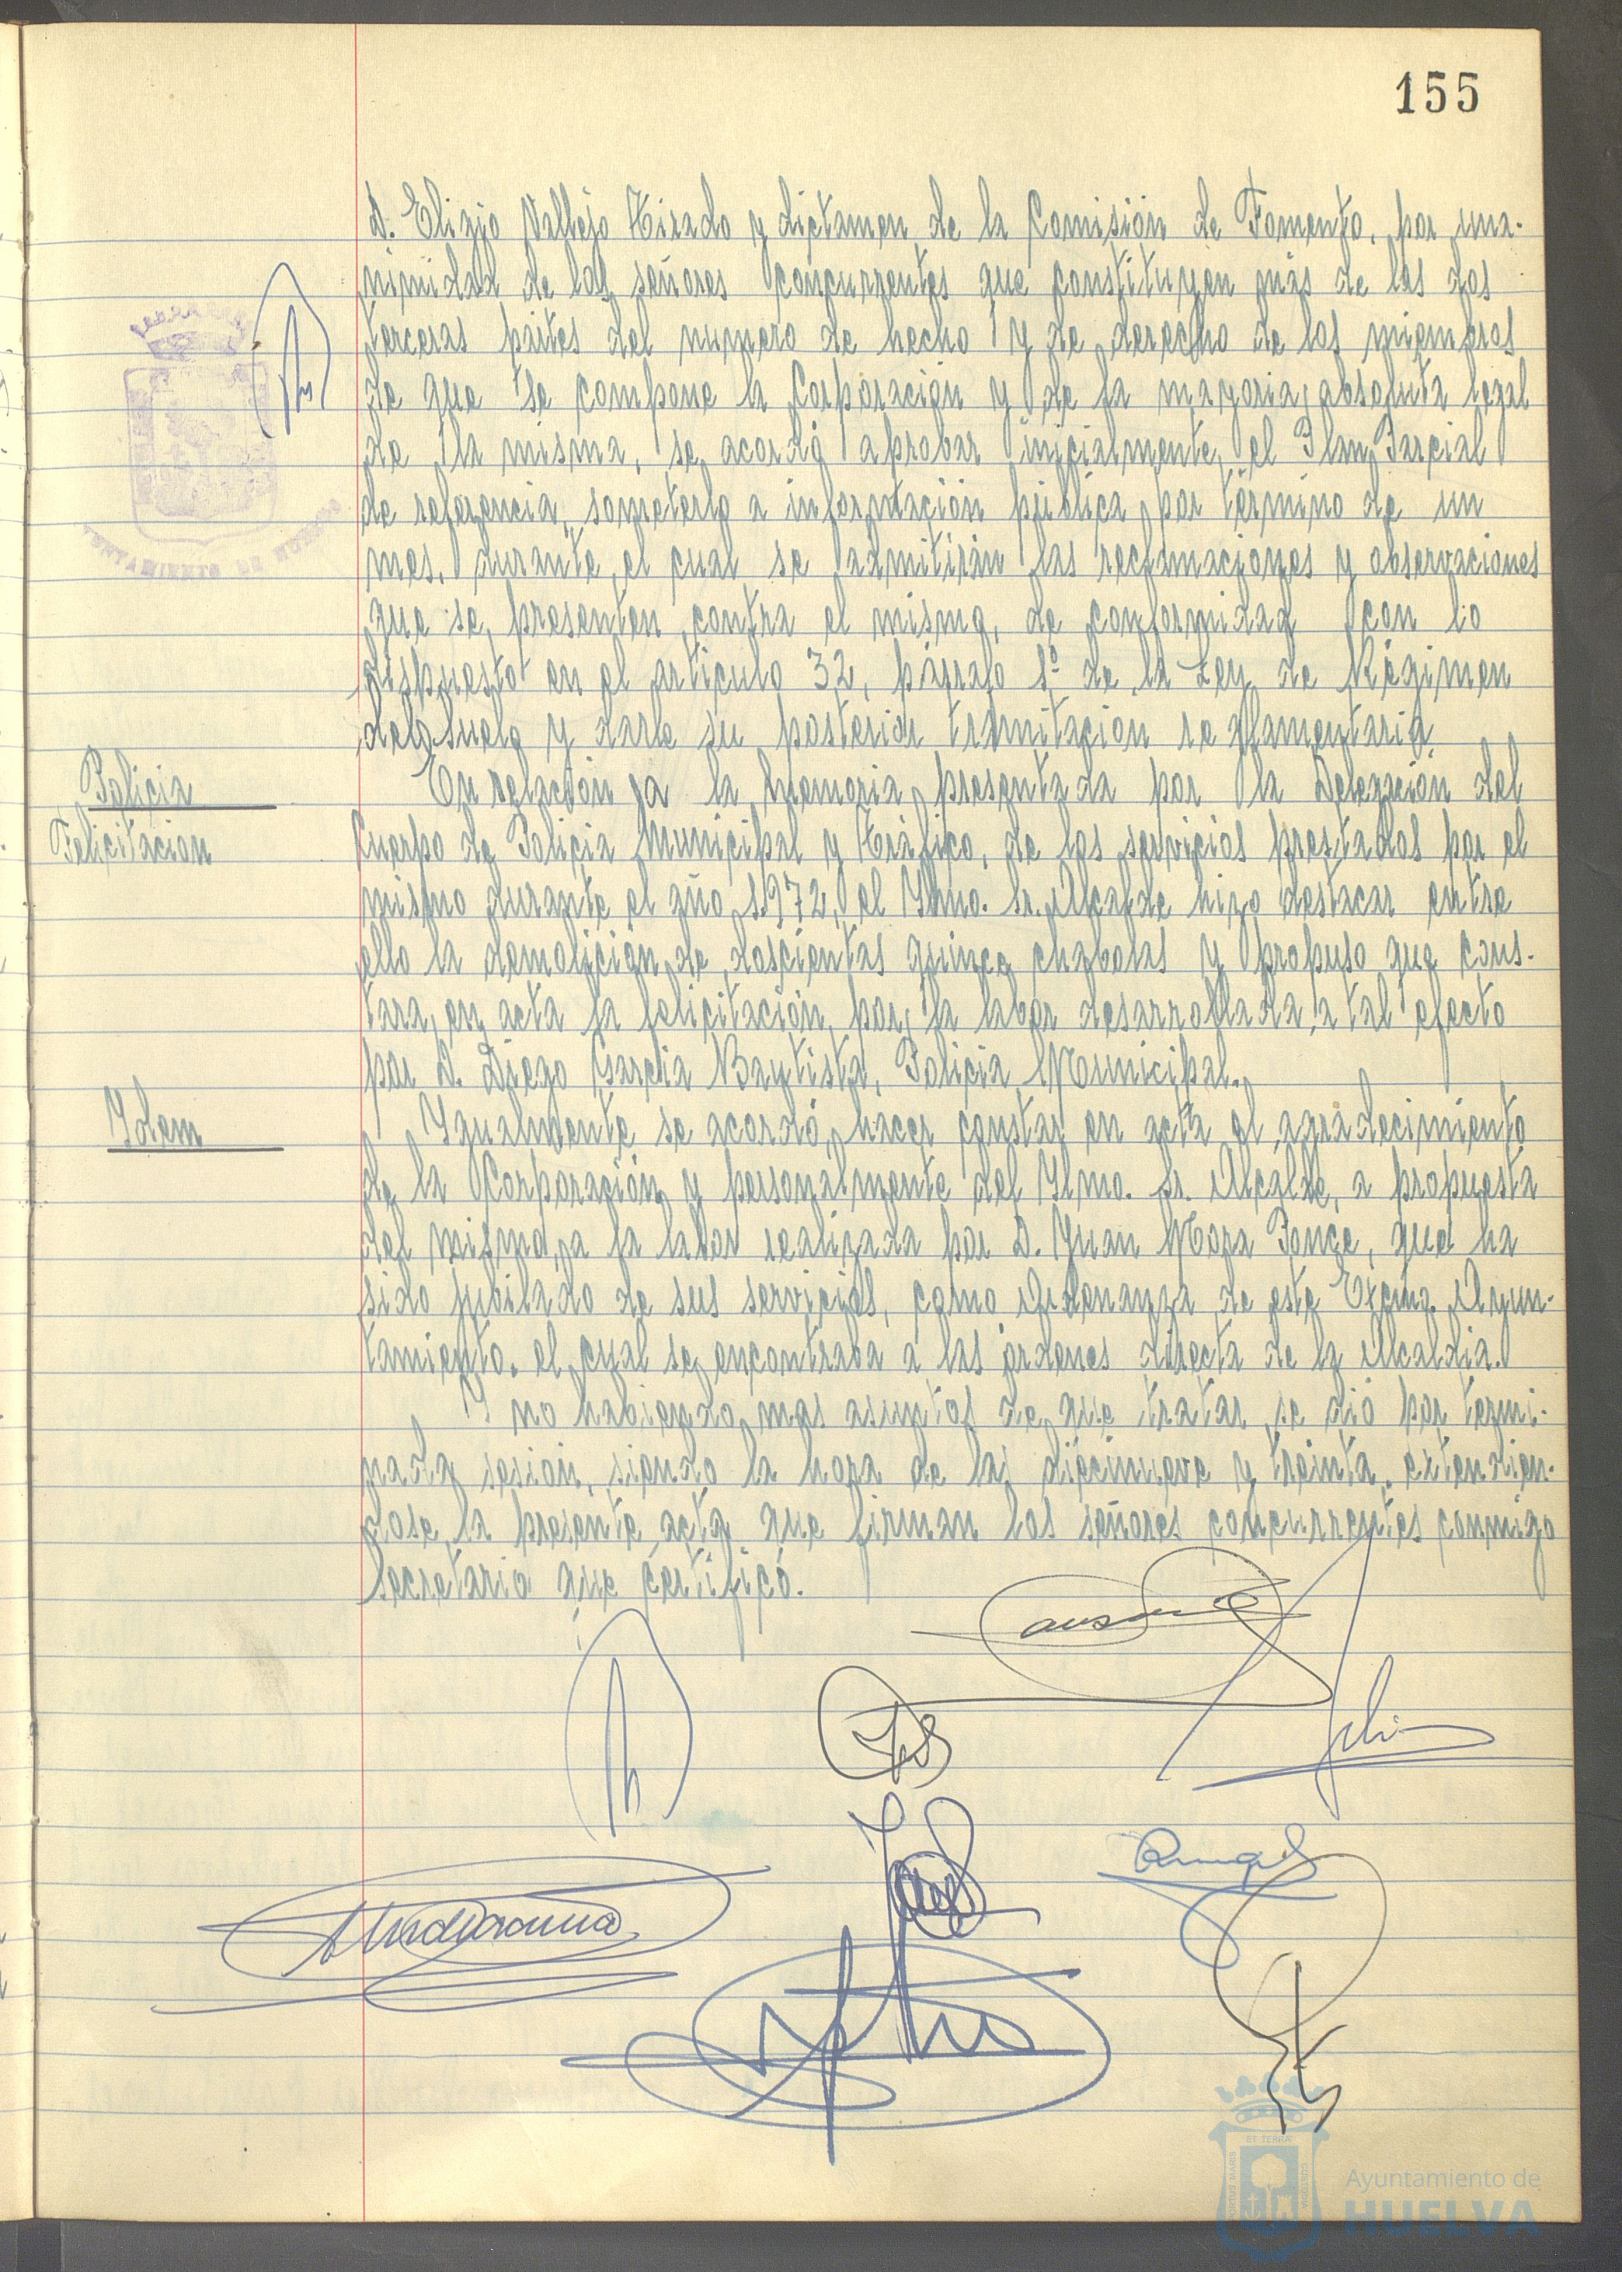 155
D. Eligio Vallejo Tirado y dictamen de la Comisión de Fomento, por una-
nimidad de los señores concurrentes que constituyen más de las dos
terceras partes del numero de hecho y de derecho de los miembros
de que se compone la Corporación y de la mayoria absoluta legal
de la misma, se acordó aprobar inicialmente el Plan Parcial
de referencia, someterlo a información pública por término de un
mes, durante el cual se admitirán las reclamaciones y observaciones
que se presenten contra el mismo, de conformidad con lo
dispuesto en el articulo 32, párrafo 1º de la Ley de Régimen
del Suelo y darle su posterior tramitación reglamentaria.
Policia
Felicitacion
En relación a la Memoria presentada por la Delegación del
Cuerpo de Policia Municipal y Tráfico, de los servicios prestados por el
mismo durante el año 1972, el Ilmo. Sr. Alcalde hizo destacar entre
ello la demolición de doscientas quince chabolas y propuso que cons-
tara en acta la felicitación por la labor desarrollada a tal efecto
por D. Diego Garcia Bautista, Policia Municipal.
Idem
Igualmente se acordó hacer constar en acta el agradecimiento
de la Corporación y personalmente del Ilmo. Sr. Alcalde, a propuesta
del mismo, a la labor realizada por D. Juan Mora Ponce, que ha
sido jubilado de sus servicios, como Ordenanza de este Excmo. Ayun-
tamiento, el cual se encontraba a las órdenes directa de la Alcaldia.
Y no habiendo mas asuntos de que tratar se dió por termi-
nada sesion, siendo la hora de las diecinueve y treinta, extendien-
dose la presente acta que firman los señores concurrentes conmigo
Secretario que certificó.
AYUNTAMIENTO DE HUELVA
Ayuntamiento de
HUELVA